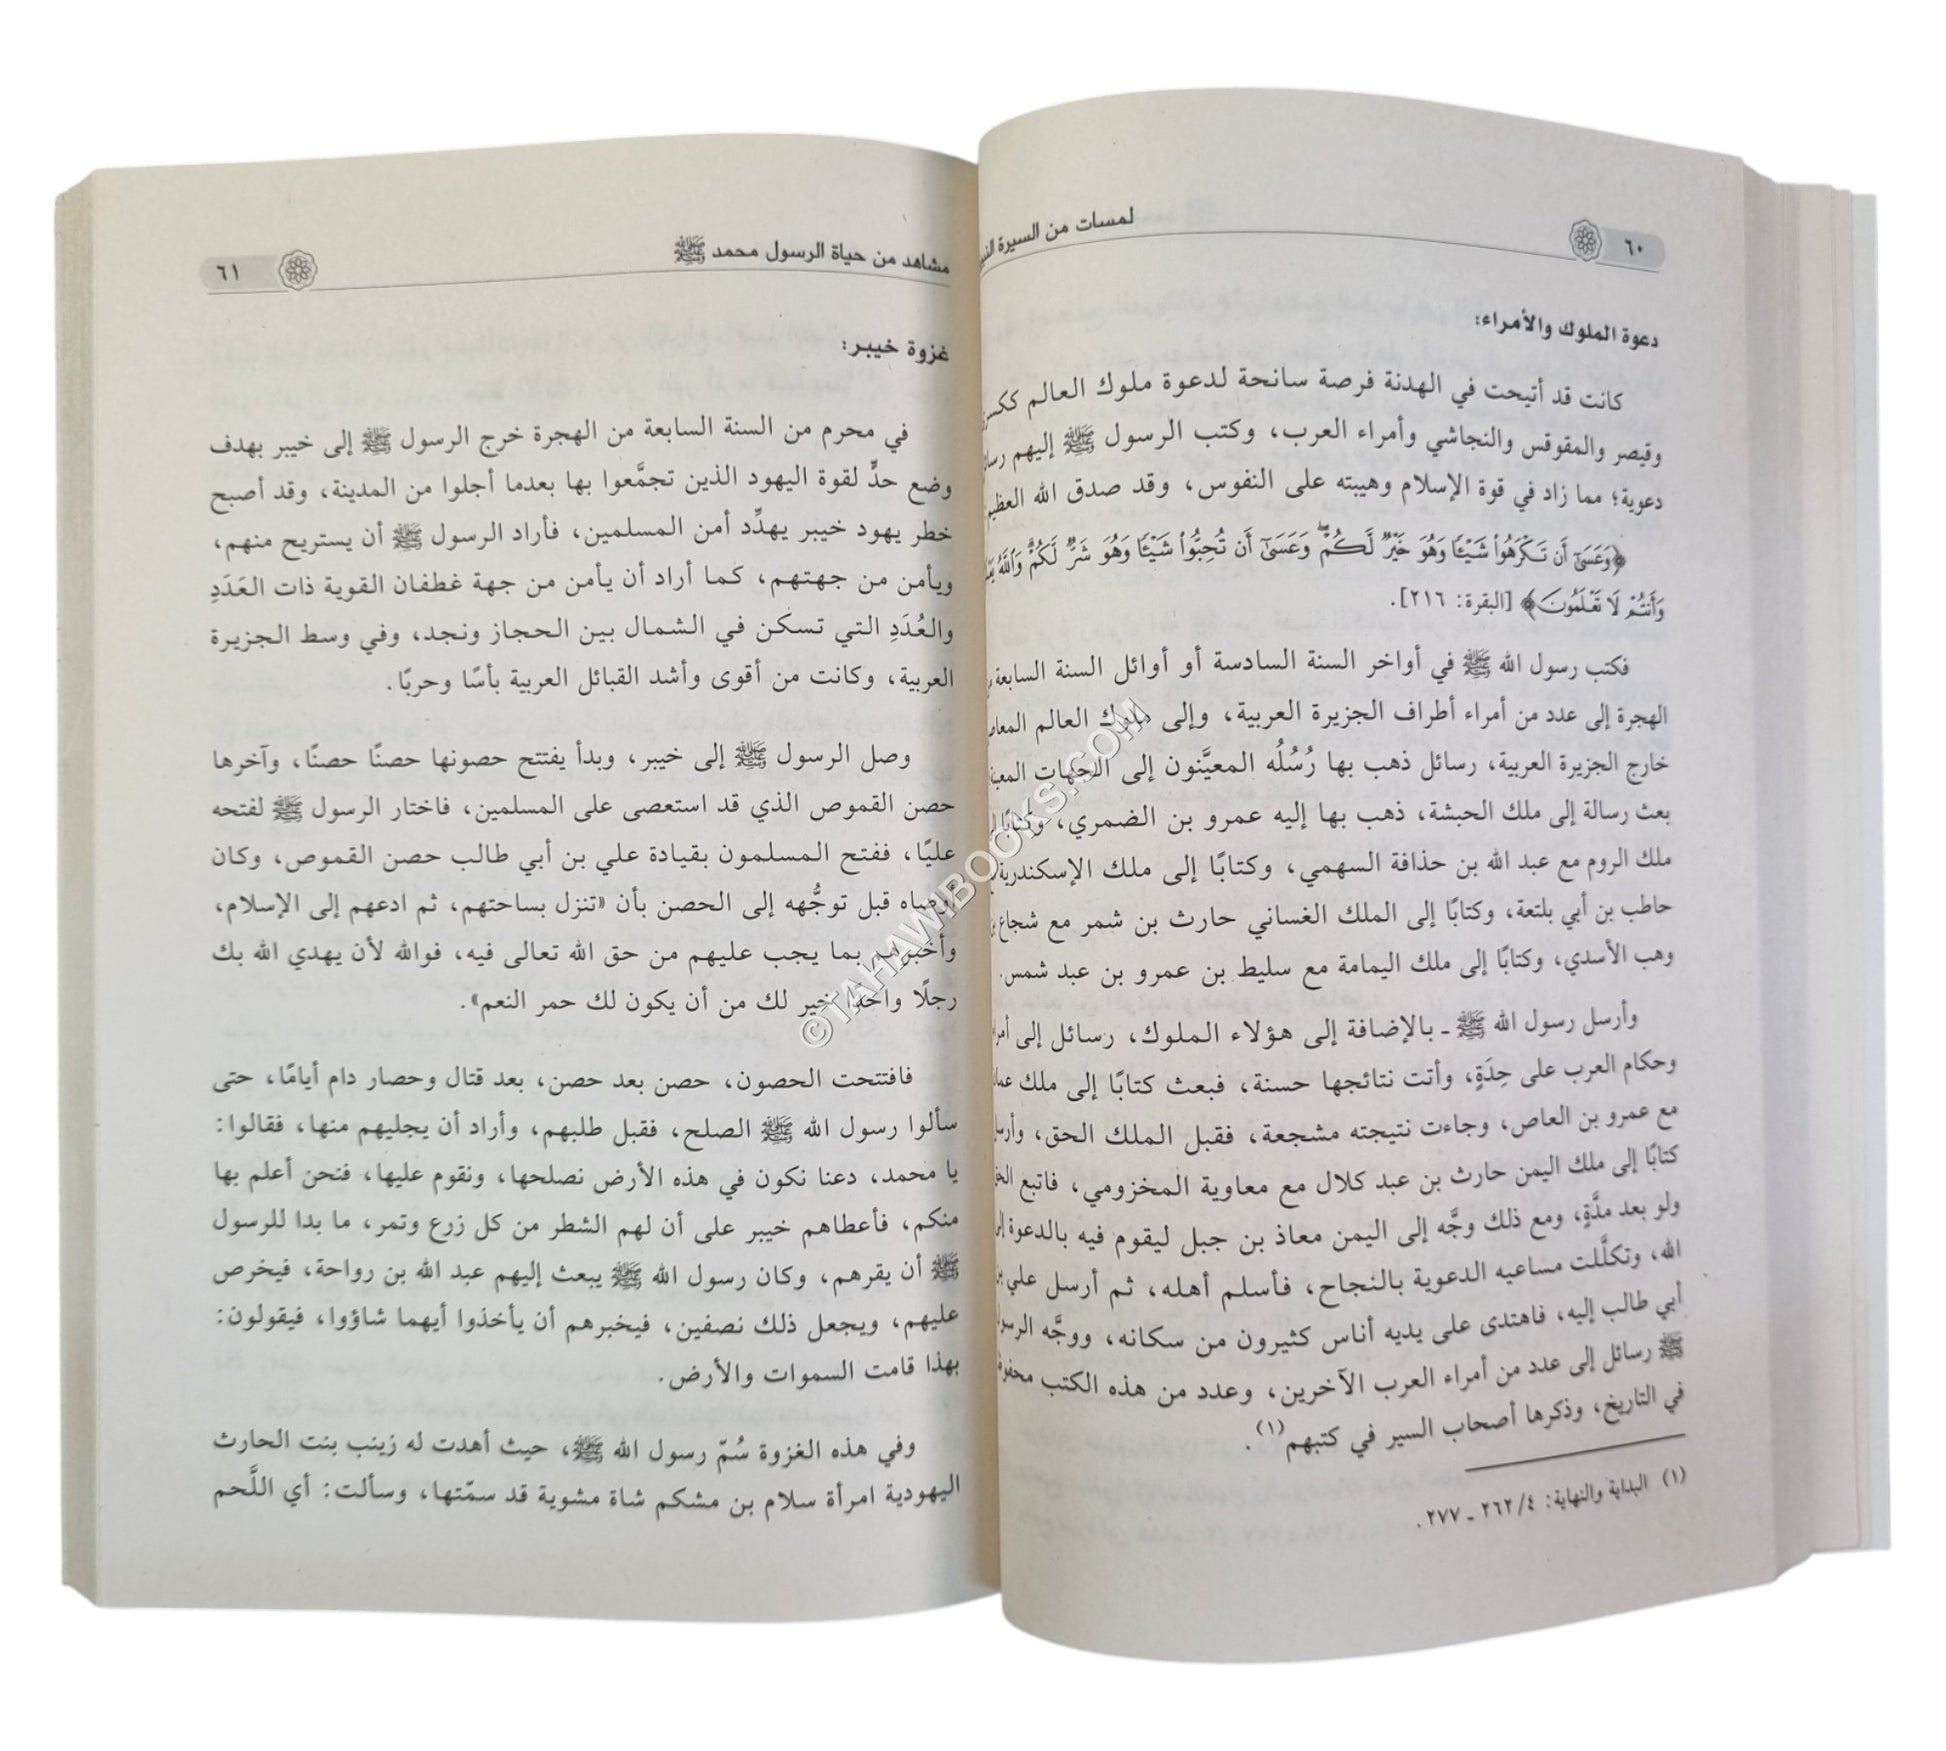 ٦٠
لمسات من السيرة
دعوة الملوك والأمراء:
كانت قد أتيحت في الهدنة فرصة سانحة لدعوة ملوك العالم
وقيصر والمقوقس والنجاشي وأمراء العرب، وكتب الرسول ﷺ إليهم
دعوية؛ مما زاد في قوة الإسلام وهيبته على النفوس، وقد صدق الله
﴿وَعَسَىٰٓ أَن تَكْرَهُوا۟ شَيْـًٔا وَهُوَ خَيْرٌ لَّكُمْ ۖ وَعَسَىٰٓ أَن تُحِبُّوا۟ شَيْـًٔا وَهُوَ شَرٌّ لَّكُمْ ۗ وَٱللَّهُ
وَأَنتُمْ لَا تَعْلَمُونَ﴾ [البقرة: ٢١٦].
فكتب رسول الله ﷺ في أواخر السنة السادسة أو أوائل السنة السابعة
الهجرة إلى عدد من أمراء أطراف الجزيرة العربية، وإلى ملوك العالم
خارج الجزيرة العربية، رسائل ذهب بها رُسُلُه المعيَّنون إلى الجهات
بعث رسالة إلى ملك الحبشة، ذهب بها إليه عمرو بن الضمري، وكتابًا
ملك الروم مع عبد الله بن حذافة السهمي، وكتابًا إلى ملك الإسكندرية
حاطب بن أبي بلتعة، وكتابًا إلى الملك الغساني حارث بن شمر مع شجاع
وهب الأسدي، وكتابًا إلى ملك اليمامة مع سليط بن عمرو بن عبد شمس.
وأرسل رسول الله ﷺ ـ بالإضافة إلى هؤلاء الملوك، رسائل إلى
وحكام العرب على حِدَةٍ، وأتت نتائجها حسنة، فبعث كتابًا إلى ملك
مع عمرو بن العاص، وجاءت نتيجته مشجعة، فقبل الملك الحق،
كتابًا إلى ملك اليمن حارث بن عبد كلال مع معاوية المخزومي، فاتبع
ولو بعد مدَّةٍ، ومع ذلك وجَّه إلى اليمن معاذ بن جبل ليقوم فيه بالدعوة
الله، وتكلَّلت مساعيه الدعوية بالنجاح، فأسلم أهله، ثم أرسل علي
أبي طالب إليه، فاهتدى على يديه أناس كثيرون من سكانه، ووجَّه
ﷺ رسائل إلى عدد من أمراء العرب الآخرين، وعدد من هذه الكتب
في التاريخ، وذكرها أصحاب السير في كتبهم(١).
(١) البداية والنهاية: ٢٦٢/٤ ـ ٢٧٧.
مشاهد من حياة الرسول محمد ﷺ
٦١
غزوة خيبر:
في محرم من السنة السابعة من الهجرة خرج الرسول ﷺ إلى خيبر بهدف
وضع حدٍّ لقوة اليهود الذين تجمَّعوا بها بعدما أجلوا من المدينة، وقد أصبح
خطر يهود خيبر يهدِّد أمن المسلمين، فأراد الرسول ﷺ أن يستريح منهم،
ويأمن من جهتهم، كما أراد أن يأمن من جهة غطفان القوية ذات العَدَدِ
والعُدَدِ التي تسكن في الشمال بين الحجاز ونجد، وفي وسط الجزيرة
العربية، وكانت من أقوى وأشد القبائل العربية بأسًا وحربًا.
وصل الرسول ﷺ إلى خيبر، وبدأ يفتتح حصونها حصنًا حصنًا، وآخرها
حصن القموص الذي قد استعصى على المسلمين، فاختار الرسول ﷺ لفتحه
عليًا، ففتح المسلمون بقيادة علي بن أبي طالب حصن القموص، وكان
أوصاه قبل توجُّهه إلى الحصن بأن «تنزل بساحتهم، ثم ادعهم إلى الإسلام،
وأخبرهم بما يجب عليهم من حق الله تعالى فيه، فوالله لأن يهدي الله بك
رجلًا واحدًا خير لك من أن يكون لك حمر النعم».
فافتتحت الحصون، حصن بعد حصن، بعد قتال وحصار دام أيامًا، حتى
سألوا رسول الله ﷺ الصلح، فقبل طلبهم، وأراد أن يجليهم منها، فقالوا:
يا محمد، دعنا نكون في هذه الأرض نصلحها، ونقوم عليها، فنحن أعلم بها
منكم، فأعطاهم خيبر على أن لهم الشطر من كل زرع وتمر، ما بدا للرسول
ﷺ أن يقرهم، وكان رسول الله ﷺ يبعث إليهم عبد الله بن رواحة، فيخرص
عليهم، ويجعل ذلك نصفين، فيخبرهم أن يأخذوا أيهما شاؤوا، فيقولون:
بهذا قامت السموات والأرض.
وفي هذه الغزوة سُمّ رسول الله ﷺ، حيث أهدت له زينب بنت الحارث
اليهودية امرأة سلام بن مشكم شاة مشوية قد سمّتها، وسألت: أي اللَّحم
©TAHAWIBOOKS.COM